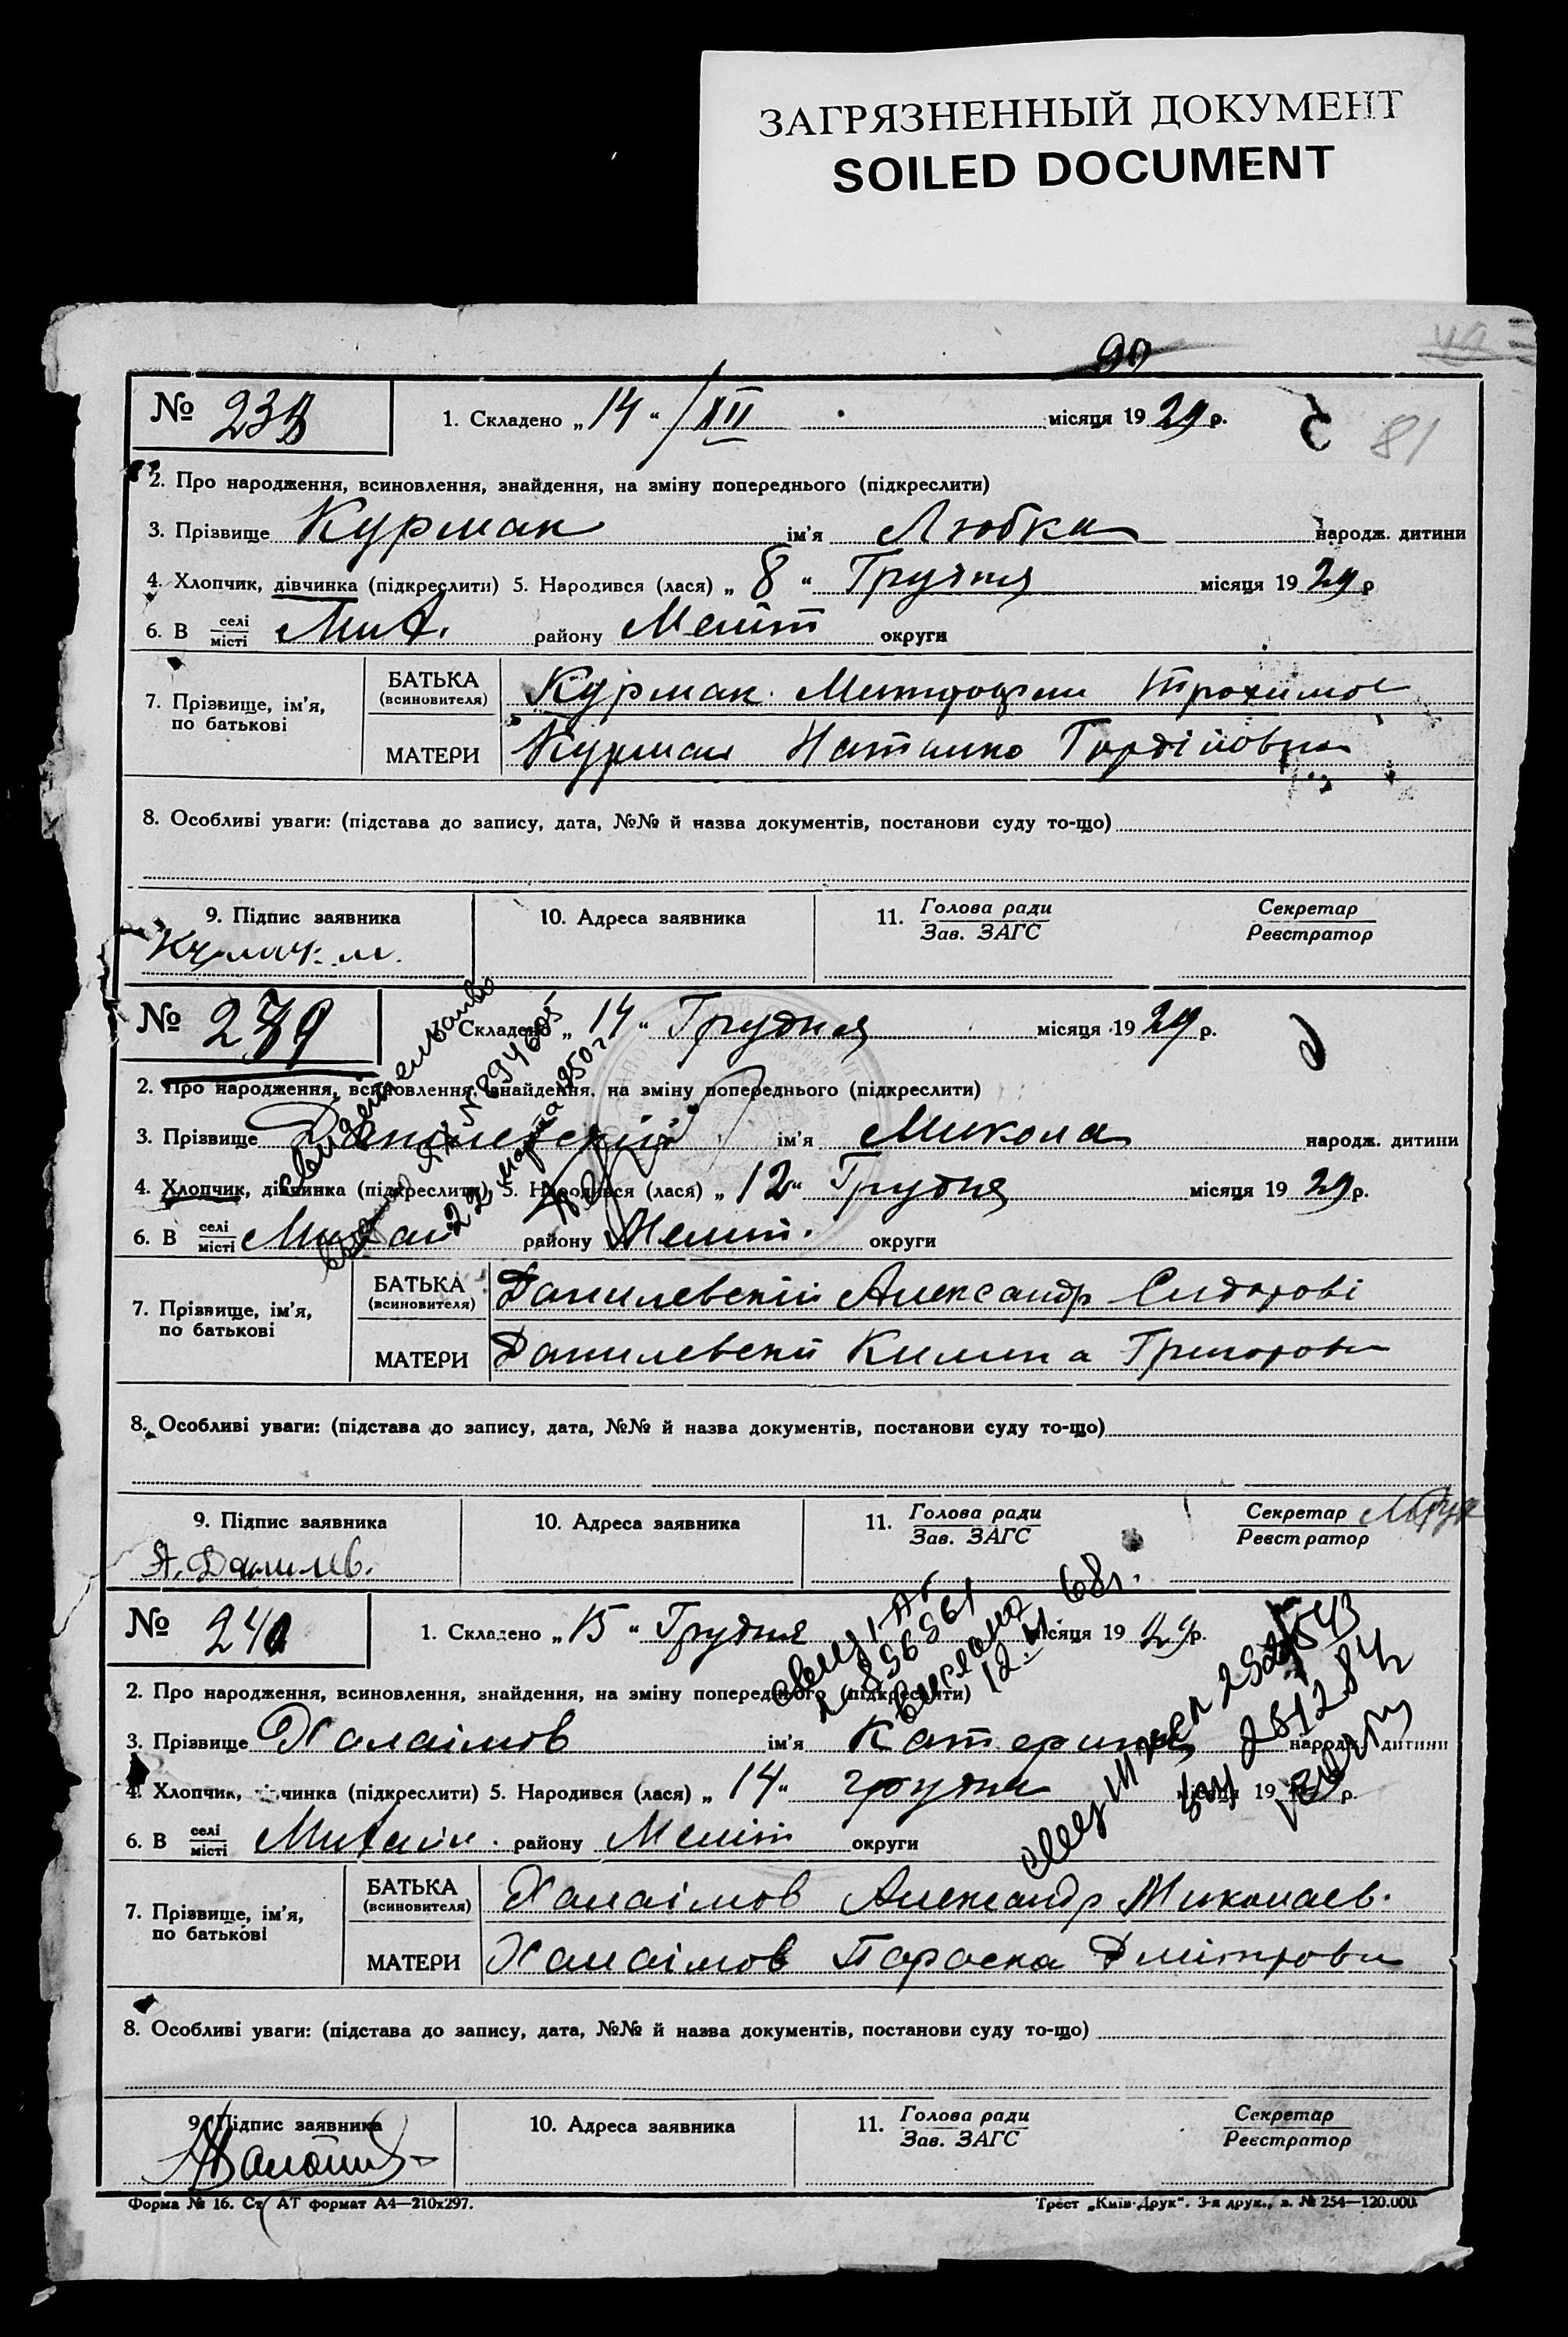 ЗАГРЯЗНЕННЫЙ ДОКУМЕНТ
SOILED DOCUMENT
90
81
№ 238 1. Складено „14“ /XII місяця 1929 р.
2. Про народження, всиновлення, знайдення, на зміну попереднього (підкреслити)
3. Прізвище Курман ім'я Любка народж. дитини
4. Хлопчик, дівчинка (підкреслити) 5. Народився (лася) „8“ Грудня місяця 1929 р
6. В селі місті Мих. району Меліт округи
7. Прізвище, ім'я, по батькові
БАТЬКА (всиновителя) Курман Митрофан Трохимов
МАТЕРИ Курман Наталко Гордійовна
8. Особливі уваги: (підстава до запису, дата, №№ й назва документів, постанови суду то-що)
9. Підпис заявника 10. Адреса заявника 11. Голова ради Зав. ЗАГС Секретар Реєстратор
№ 239 Складено „14“ Грудня місяця 1929 р.
2. Про народження, всиновлення, знайдення, на зміну попереднього (підкреслити)
3. Прізвище Данилевский ім'я Микола народж. дитини
4. Хлопчик, дівчинка (підкреслити) 5. Народився (лася) „12“ Грудня місяця 1929 р.
6. В селі місті Михай району Меліт. округи
свидетельство
№ 894605
22 марта 1950 г.
7. Прізвище, ім'я, по батькові
БАТЬКА (всиновителя) Данилевский Александр Сидорові
МАТЕРИ Данилевский Килина Григоровн
8. Особливі уваги: (підстава до запису, дата, №№ й назва документів, постанови суду то-що)
9. Підпис заявника 10. Адреса заявника 11. Голова ради Зав. ЗАГС Секретар Реєстратор
А. Данилев.
№ 240 1. Складено „15“ Грудня місяця 1929 р.
2. Про народження, всиновлення, знайдення, на зміну попереднього (підкреслити)
3. Прізвище Халаімов ім'я Катерина народж. дитини
4. Хлопчик, дівчинка (підкреслити) 5. Народився (лася) „14“ грудня місяця 1929 р.
6. В селі місті Михайл. району Меліт округи
выслано
12. VI 68г.
7. Прізвище, ім'я, по батькові
БАТЬКА (всиновителя) Халаімов Александр Миколаев.
МАТЕРИ Халаімов Параска Дмітровн
8. Особливі уваги: (підстава до запису, дата, №№ й назва документів, постанови суду то-що)
9. Підпис заявника 10. Адреса заявника 11. Голова ради Зав. ЗАГС Секретар Реєстратор
Форма № 16. Ст. АТ формат А4—210х297. Трест „Київ-Друк“. 3-я друк., з. № 254—120.000.